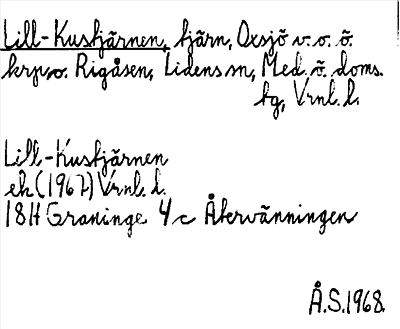 Lill-Kustjärnen, tjärn, Oxsjö v.o. ö.
krp, o. Rigåsen, Lidens sn, Med. ö. doms.
tg, Vrnl. l.
Lill-Kustjärnen
ek (1967) Vrnl. l.
18H Graninge 4c Återvänningen
Å.S. 1968.